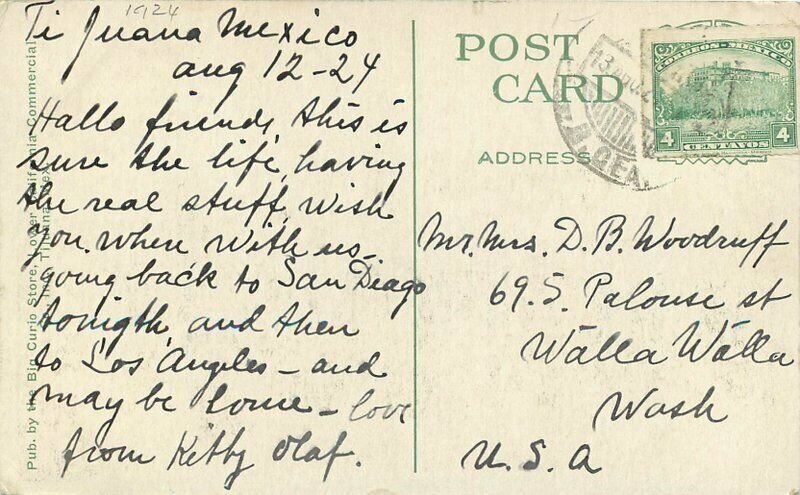 1924
Ti Juana Mexico
aug 12-24
Hallo friends, this is
sure the life, having
the real stuff, wish
you when with us-
going back to San Diago
tonigth, and then
to Los Angeles - and
may be home - love
from Kitty Olaf.
Pub. by the Big Curio Store, Lower California Commercial
Tijuana, Mex
POST
CARD
ADDRESS
CORREOS-MEXICO
4 4
CENTAVOS
13
Mr. Mrs. D. B. Woodruff
69. S. Palouse st
Walla Walla
Wash
U. S. A